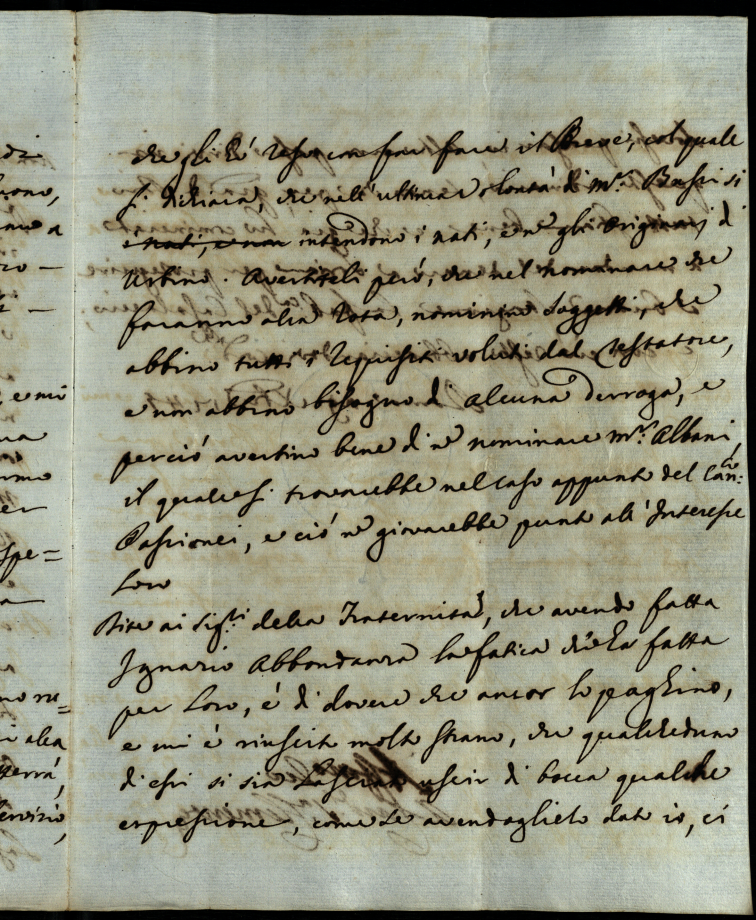 che gli è far fare il Breve, col quale
si dichiara, che nell'ultima volontà di Mr. Bussi si
i nati, e non intendono i nati, e nō gli originarj di
Urbino. Avertiteli però, che nel nominare che
faranno alla Rota, nominino soggetti, che
abbino tutti i requisiti voluti dal testatore,
e non abbino bisogno di alcuna derroga, e
perciò avertino bene di nō nominare Mr. Albani,
il quale si trovarebbe nel caso appunto del Can:co
Passionei, e ciò nō giovarebbe punto all'Interesse
Loro
Dite ai Sigri della Fraternità, che avendo fatta
Ignazio Abbondanza la fatica che ha fatta
per Loro, è di dovere che ancor lo paghino,
e mi è riuscito molto strano, che qualcheduno
di essi si sia lasciato uscir di bocca qualche
espressione, come se avendoglielo dato io, ci
uono,
e mi
ma
Spe=
no ru=
i alla
terrà,
ervizio,